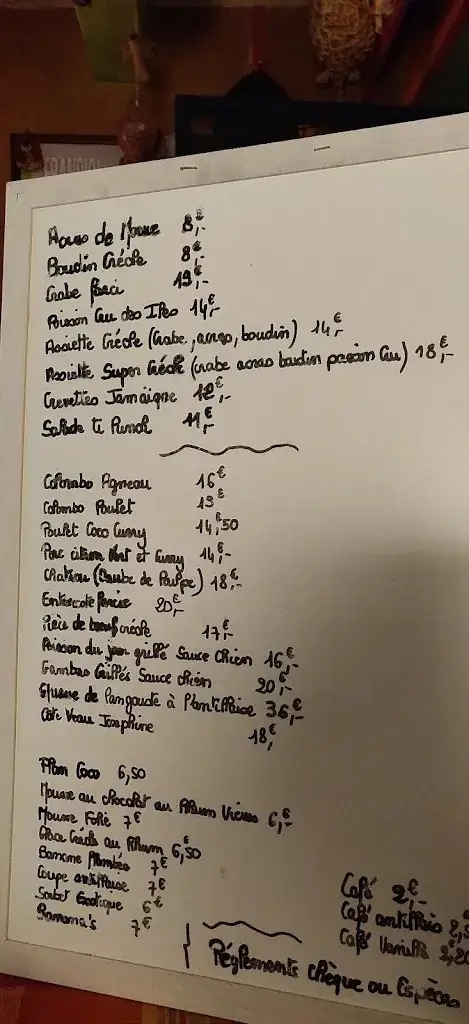 Acras de Morue 8€,-
Boudin Créole 8€,-
Crabe farci 13€,-
Poisson Cru des Iles 14€,-
Assiette Créole (Crabe, acras, boudin) 14€,-
Assiette Super Créole (crabe acras boudin poisson Cru) 18€,-
Crevettes Jamaïque 12€,-
Salade ti Punch 11€,-
Colombo Agneau 16€
Colombo Poulet 13€
Poulet Coco Curry 14€,50
Porc citron Vert et Curry 14€,-
Chatrou (Daube de Poulpe) 18€,-
Entrecote 20€,-
Pièce de boeuf créole 17€,-
Poisson du jour grillé Sauce Chien 16€,-
Gambas Grillés Sauce chien 20€,-
de Langouste à l'antillaise 36€,-
Côte Veau Joséphine 18€,-
Flan Coco 6,50
Mousse au chocolat au Rhum Vieux 6€,-
Mousse Folie 7€
Glace Créole au Rhum 6€,50
Banane Flambée 7€
Coupe antillaise 7€
Sorbet Exotique 6€
Banana's 7€
Café 2€,-
Café antillais
Café Vanille 2,20
Réglements Chèque ou Espèces